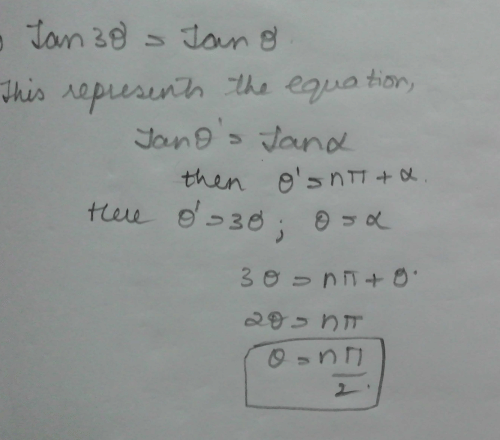 Tan 3θ = Tan θ.
This represents the equation,
Tan θ' = Tan α
then θ' = nπ + α.
Here θ' = 3θ ; θ = α
3θ = nπ + θ.
2θ = nπ
θ = nπ/2.